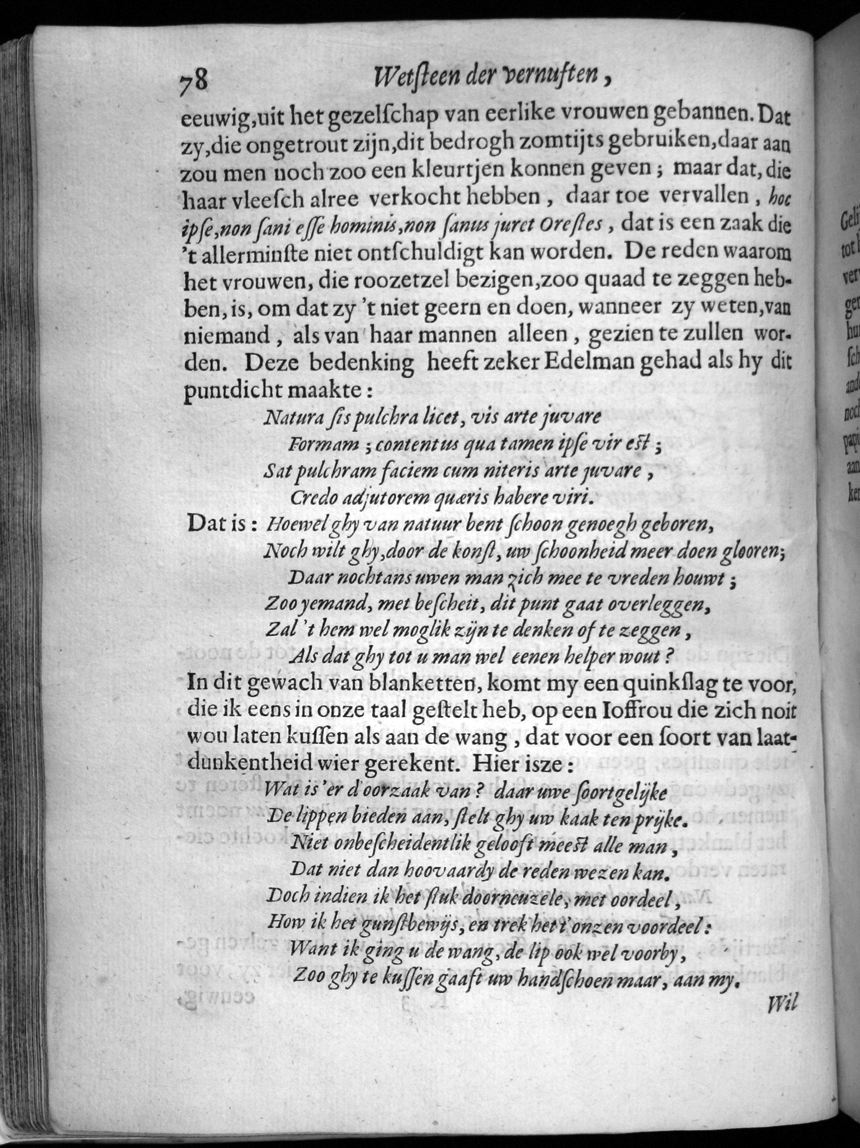 78 Wetſteen der vernuften,
eeuwig,uit het gezelſchap van eerlike vrouwen gebannen. Dat
zy,die ongetrout zijn,dit bedrogh zomtijts gebruiken,daar aan
zou men noch zoo een kleurtjen konnen geven; maar dat, die
haar vleeſch alree verkocht hebben, daar toe vervallen, hoc
ipſe,non ſani eſſe hominis,non ſanus juret Oreſtes, dat is een zaak die
't allerminſte niet ontſchuldigt kan worden. De reden waarom
het vrouwen, die roozetzel bezigen,zoo quaad te zeggen heb-
ben, is, om dat zy 't niet geern en doen, wanneer zy weten,van
niemand, als van haar mannen alleen, gezien te zullen wor-
den. Deze bedenking heeft zeker Edelman gehad als hy dit
puntdicht maakte:
Natura ſis pulchra licet, vis arte juvare
Formam; contentus qua tamen ipſe vir est;
Sat pulchram faciem cum niteris arte juvare,
Credo adjutorem quæris habere viri.
Dat is: Hoewel ghy van natuur bent ſchoon genoegh geboren,
Noch wilt ghy,door de konſt, uw ſchoonheid meer doen glooren;
Daar nochtans uwen man zich mee te vreden houwt;
Zoo yemand, met beſcheit, dit punt gaat overleggen,
Zal 't hem wel moglik zijn te denken of te zeggen,
Als dat ghy tot u man wel eenen helper wout?
In dit gewach van blanketten, komt my een quinkſlag te voor,
die ik eens in onze taal geſtelt heb, op een Ioffrou die zich noit
wou laten kuſſen als aan de wang, dat voor een ſoort van laat-
dunkentheid wier gerekent. Hier isze:
Wat is'er d'oorzaak van? daar uwe ſoortgelijke
De lippen bieden aan, ſtelt ghy uw kaak ten prijke.
Niet onbeſcheidentlik gelooft meest alle man,
Dat niet dan hoovaardy de reden wezen kan.
Doch indien ik het ſtuk doorneuzele, met oordeel,
How ik het gunſtbewijs, en trek het t'onzen voordeel:
Want ik ging u de wang, de lip ook wel voorby,
Zoo ghy te kuſſen gaaft uw handſchoen maar, aan my.
Wil